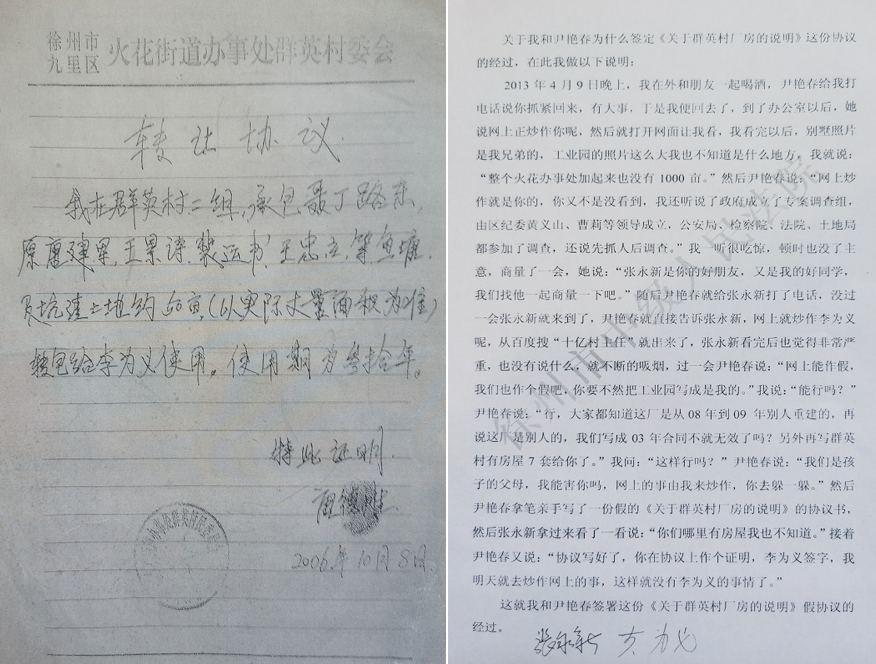 徐州市
九里区 火花街道办事处群英村委会
转让协议
我在群英村二组,承包聂丁路东,
原唐建军,王景诗,裴运书,王忠立,等鱼塘,
及坑洼土地约50亩,(以实际丈量面积为准)
转包给李为义使用。使用期为叁拾年。
特此证明.
2006年10月8日.
关于我和尹艳春为什么签定《关于群英村厂房的说明》这份协议
的经过,在此我做以下说明:
2013年4月9日晚上,我在外和朋友一起喝酒,尹艳春给我打
电话说你抓紧回来,有大事,于是我便回去了,到了办公室以后,她
说网上正炒作你呢,然后就打开网面让我看,我看完以后,别墅照片
是我兄弟的,工业园的照片这么大我也不知道是什么地方,我就说:
“整个火花办事处加起来也没有1000亩。”然后尹艳春说:“网上炒
作就是你的,你又不是没看到,我还听说了政府成立了专案调查组,
由区纪委黄义山、曹莉等领导成立,公安局、检察院、法院、土地局
都参加了调查,还说先抓人后调查。”我一听很吃惊,顿时也没了主
意,商量了一会,她说:“张永新是你的好朋友,又是我的好同学,
我们找他一起商量一下吧。”随后尹艳春就给张永新打了电话,没过
一会张永新就来到了,尹艳春就直接告诉张永新,网上就炒作李为义
呢,从百度搜“十亿村主任”就出来了,张永新看完后也觉得非常严
重,也没有说什么,就不断的吸烟,过一会尹艳春说:“网上能作假,
我们也作个假吧,你要不然把工业园写成是我的。”我说:“能行吗?”
尹艳春说:“行,大家都知道这厂是从08年到09年别人重建的,再
说这厂是别人的,我们写成03年合同不就无效了吗?另外再写群英
村有房屋7套给你了。”我问:“这样行吗?”尹艳春说:“我们是孩
子的父母,我能害你吗,网上的事由我来炒作,你去躲一躲。”然后
尹艳春拿笔亲手写了一份假的《关于群英村厂房的说明》的协议书,
然后张永新拿过来看了一看说:“你们哪里有房屋我也不知道。”接着
尹艳春又说:“协议写好了,你在协议上作个证明,李为义签字,我
明天就去炒作网上的事,这样就没有李为义的事情了。”
这就我和尹艳春签署这份《关于群英村厂房的说明》假协议的
经过。
张永新 李为义
徐州市中级人民法院